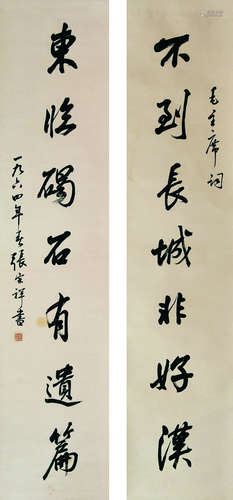 毛主席词
不到長城非好漢
東临碣石有遺篇
一九六四年春張宗祥書